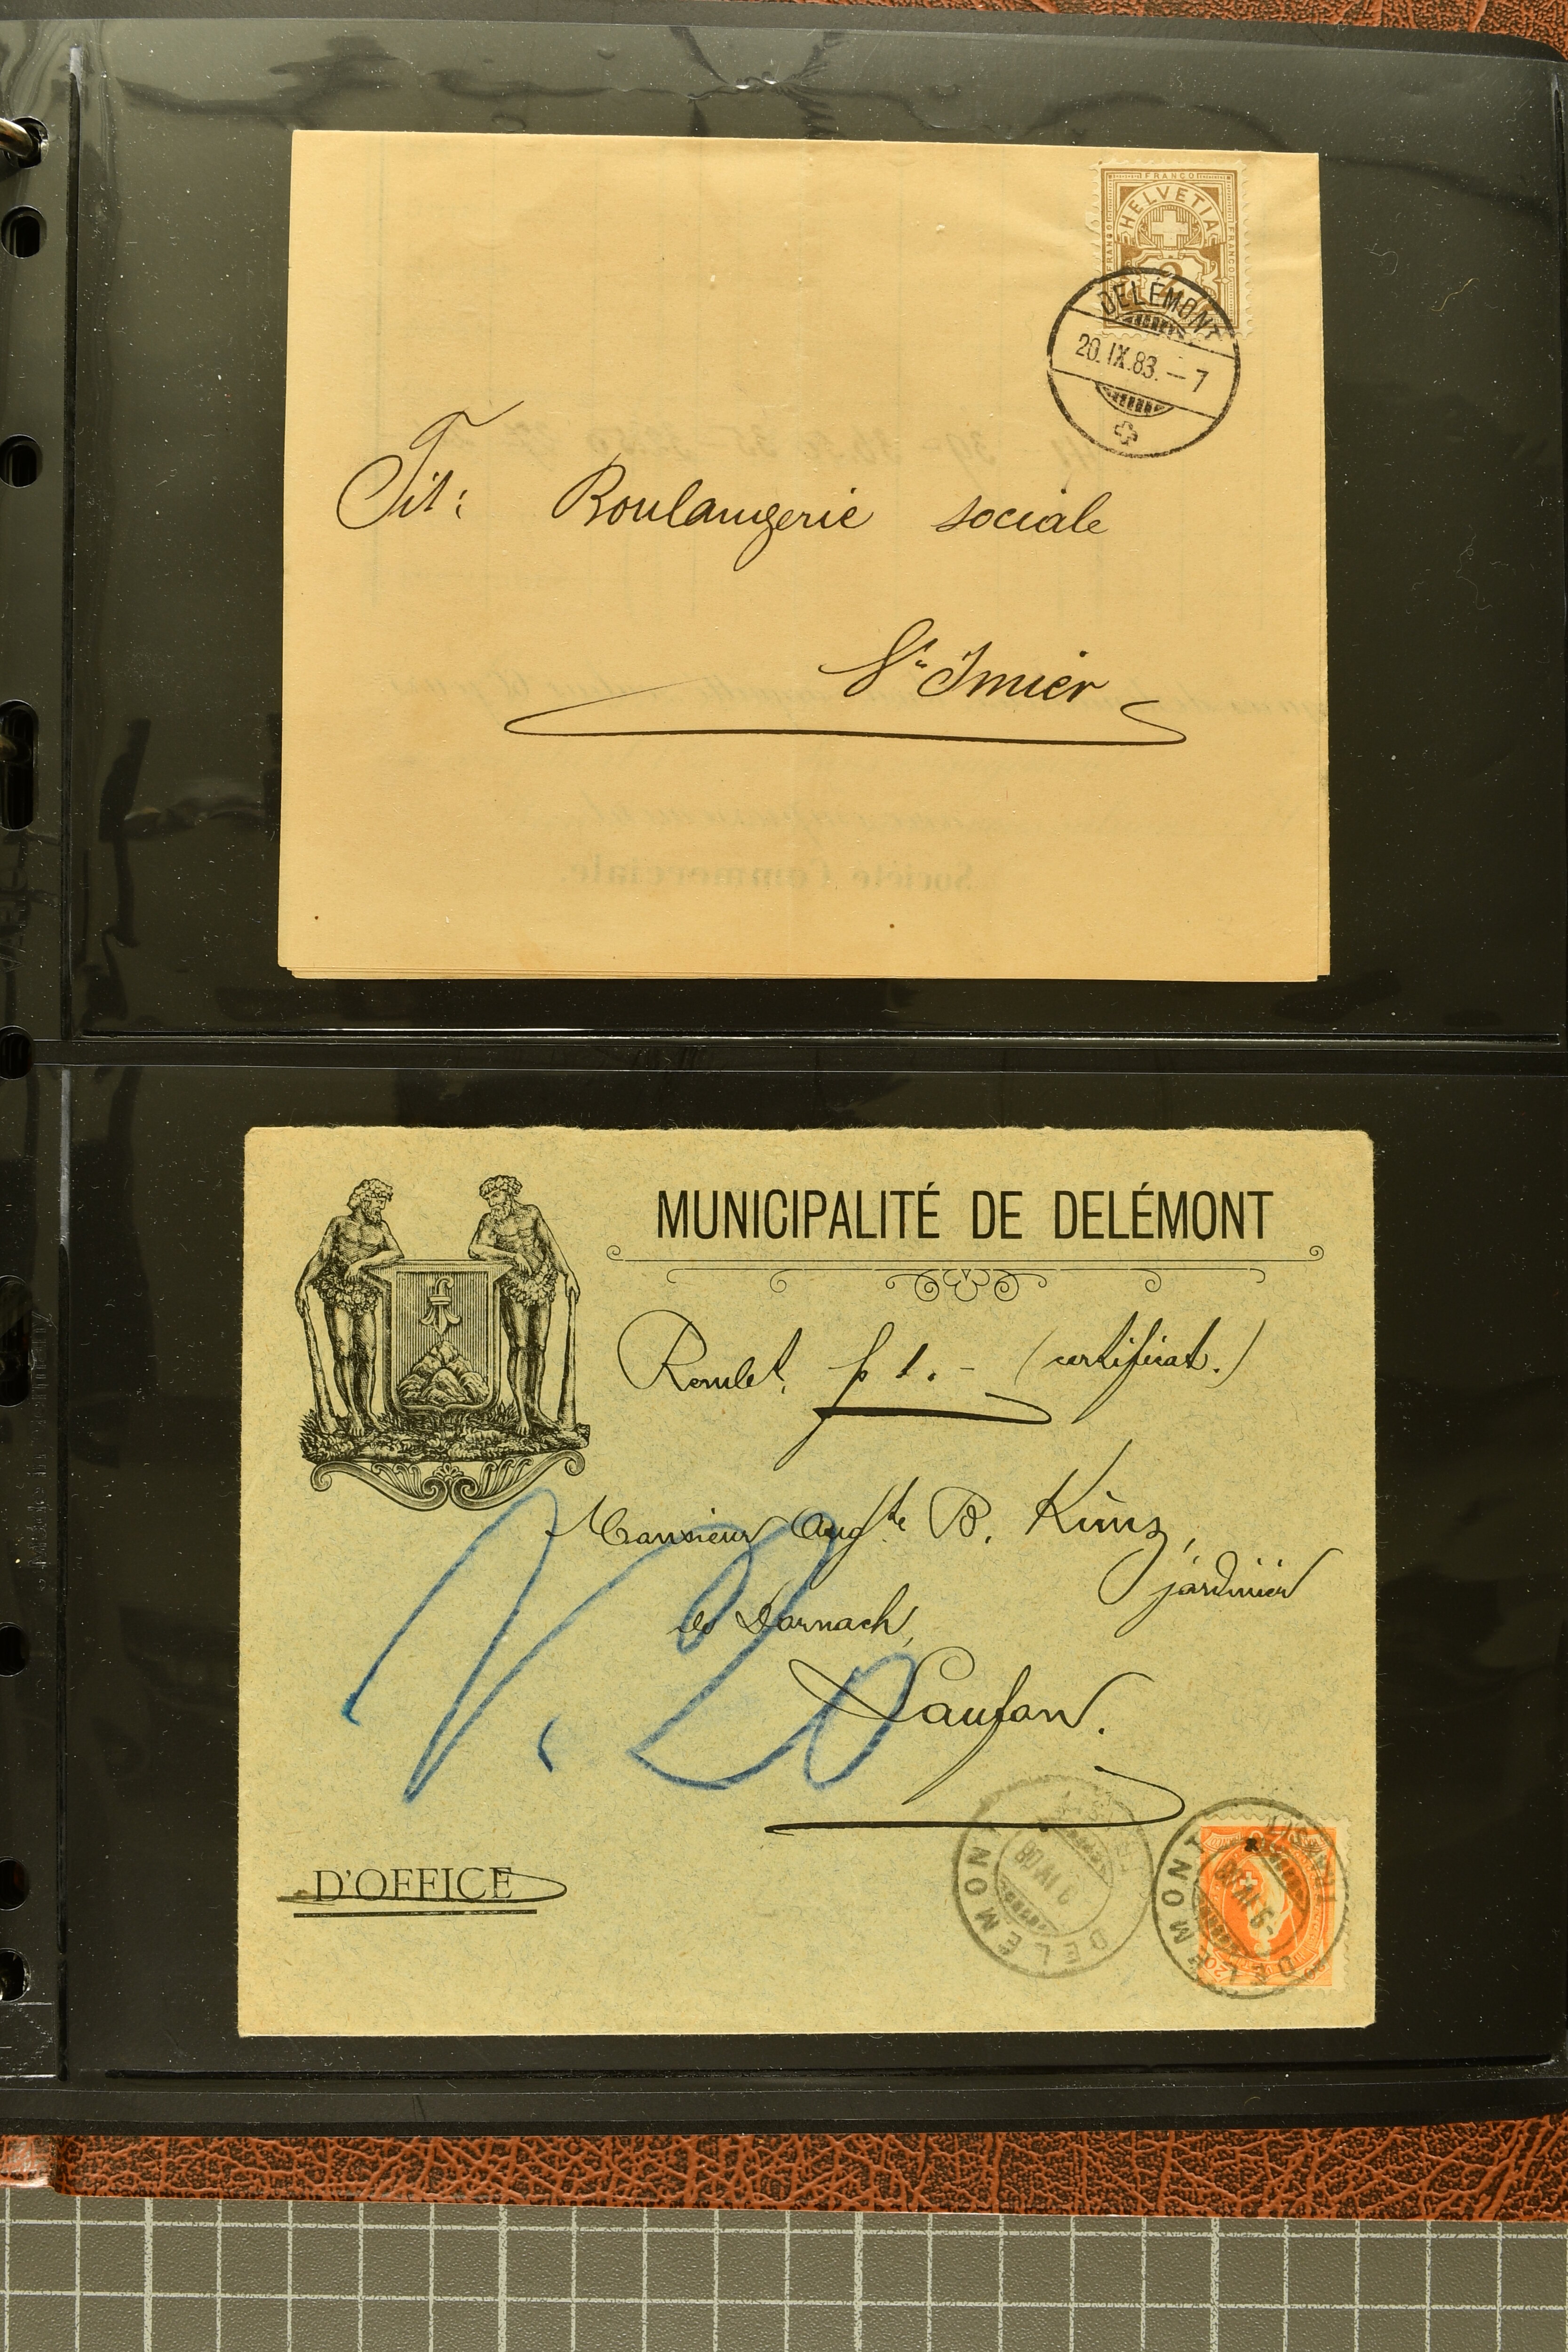 FRANCO
HELVETIA
FRANCO
FRANCO
2
DELÉMONT
20.IX.83.–7
Tit: Boulangerie sociale
St Imier
Société Commerciale.
MUNICIPALITÉ DE DELÉMONT
Rembt. fr 1.– (certificat.)
Monsieur Augte B. Kunz,
jardinier
Dornach,
Laufon.
V. 20
D'OFFICE
DELÉMONT
9 IV 08
DELÉMONT
9 IV 08
20